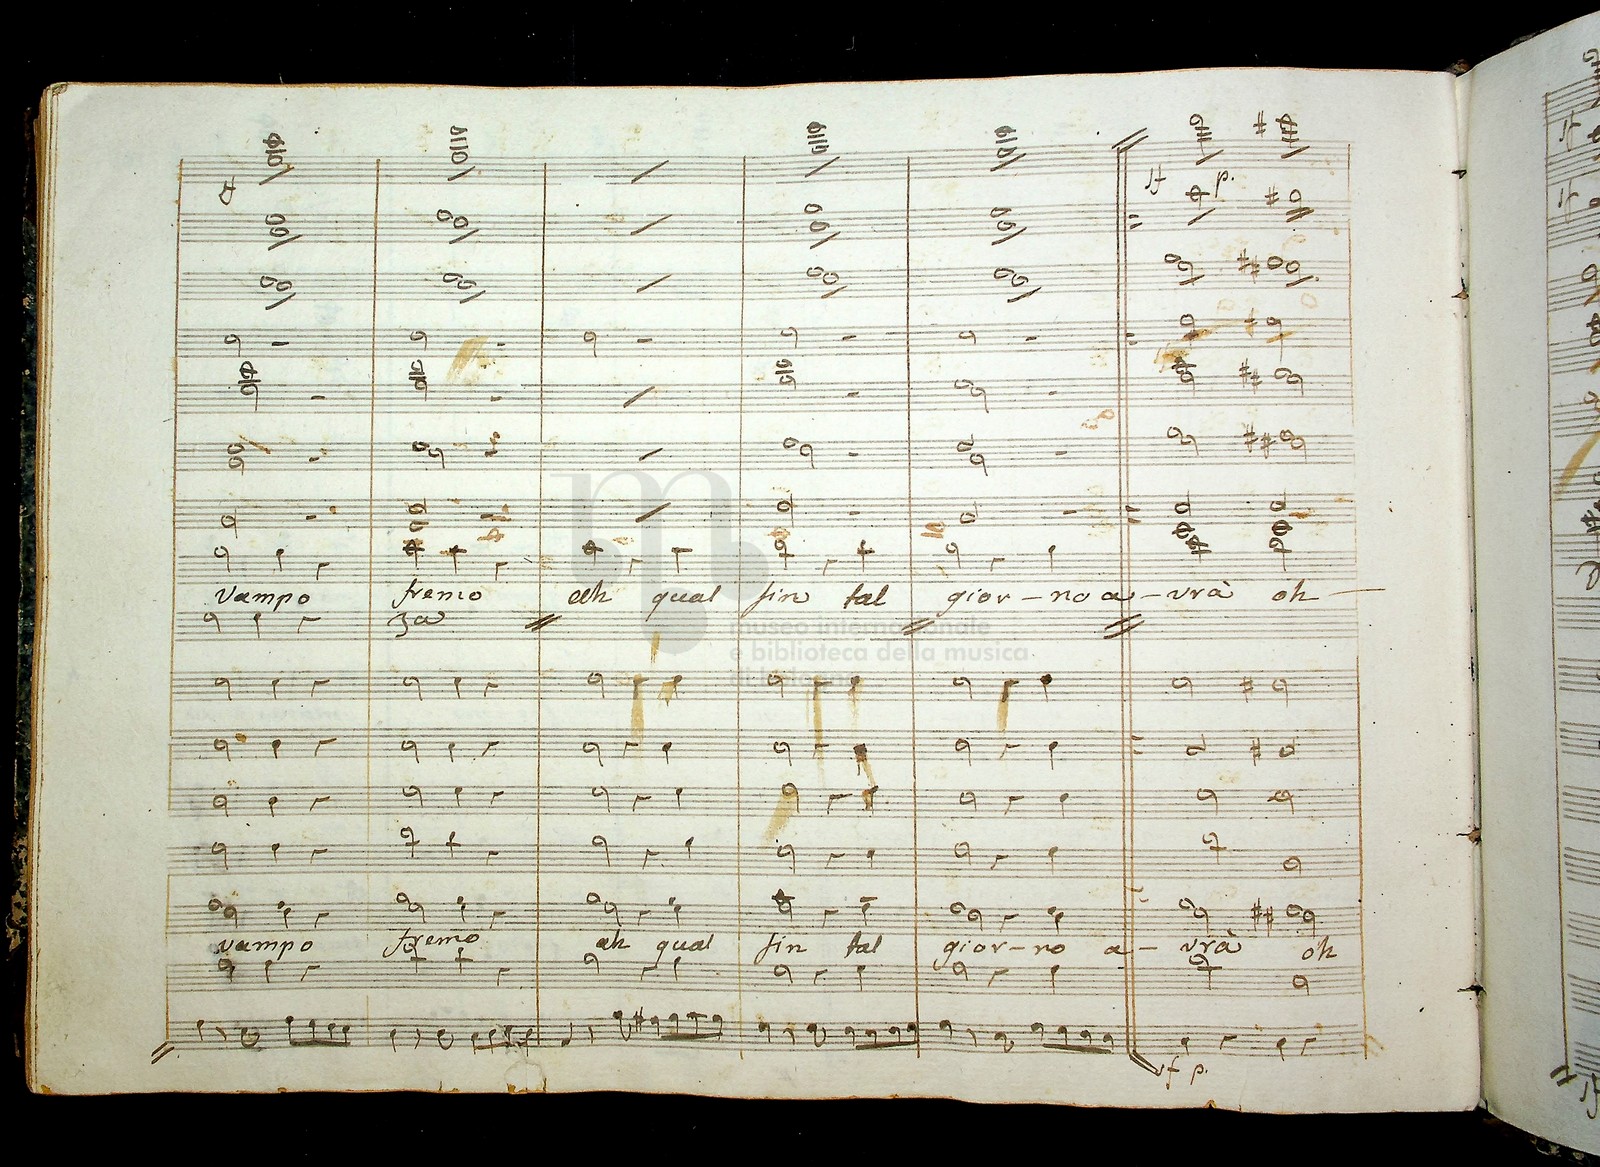 sf p.
vampo fremo ah qual fin tal gior-no a-vrà oh
za
museo internazionale
e biblioteca della musica
vampo fremo ah qual fin tal gior-no a-vrà oh
sf p.